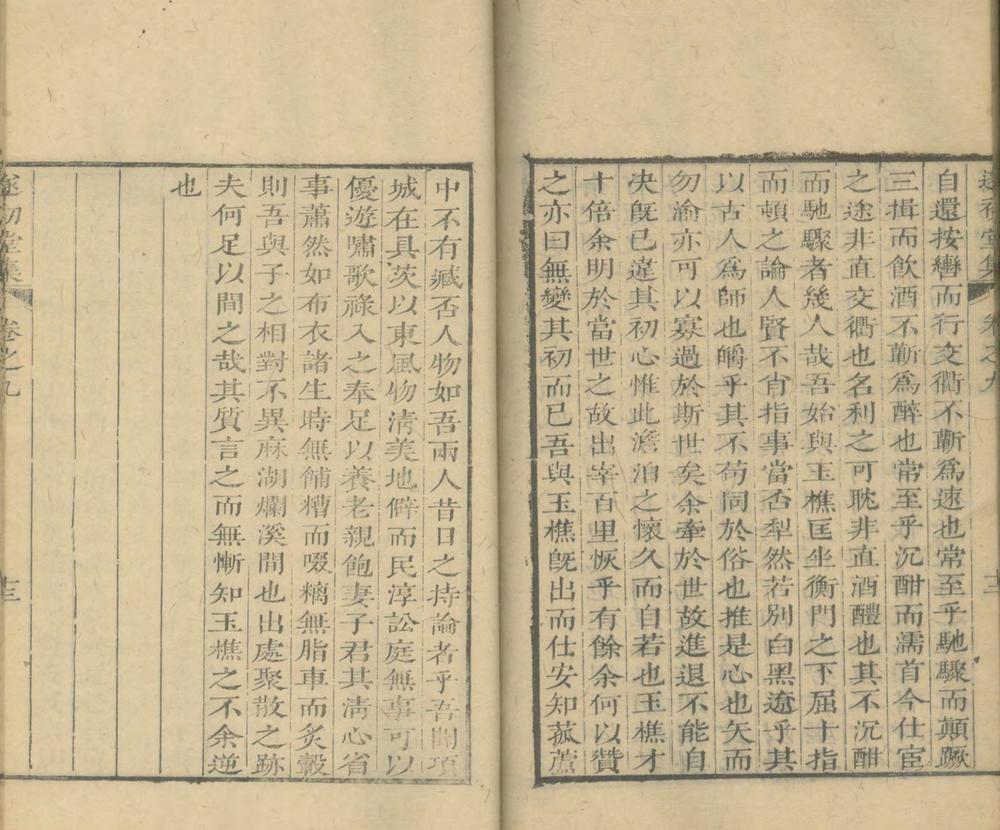 自還按轡而行交衢不蘄爲速也常至乎馳驟而顛蹶
三揖而飲酒不蘄爲醉也常至乎沉酣而濡首今仕宦
之途非直交衢也名利之可耽非直酒醴也其不沉酣
而馳驟者幾人哉吾始與玉樵匡坐衡門之下屈十指
而頓之論人賢不肖指事當否犁然若別白黑遼乎其
以古人爲師也皭乎其不苟同於俗也推是心也矢而
勿渝亦可以寡過於斯世矣余牽於世故進退不能自
决旣已違其初心惟此澹泊之懷久而自若也玉樵才
十倍余明於當世之故出宰百里恢乎有餘余何以贊
之亦曰無變其初而已吾與玉樵旣出而仕安知菰蘆
中不有臧否人物如吾兩人昔日之持論者乎吾聞項
城在具茨以東風物淸美地僻而民淳訟庭無事可以
優遊嘯歌祿入之奉足以養老親飽妻子君其淸心省
事蕭然如布衣諸生時無餔糟而啜糲無脂車而炙轂
則吾與子之相對不異麻湖爛溪間也出處聚散之跡
夫何足以間之哉其質言之而無慚知玉樵之不余逆
也
遂初堂集 卷之九 十三